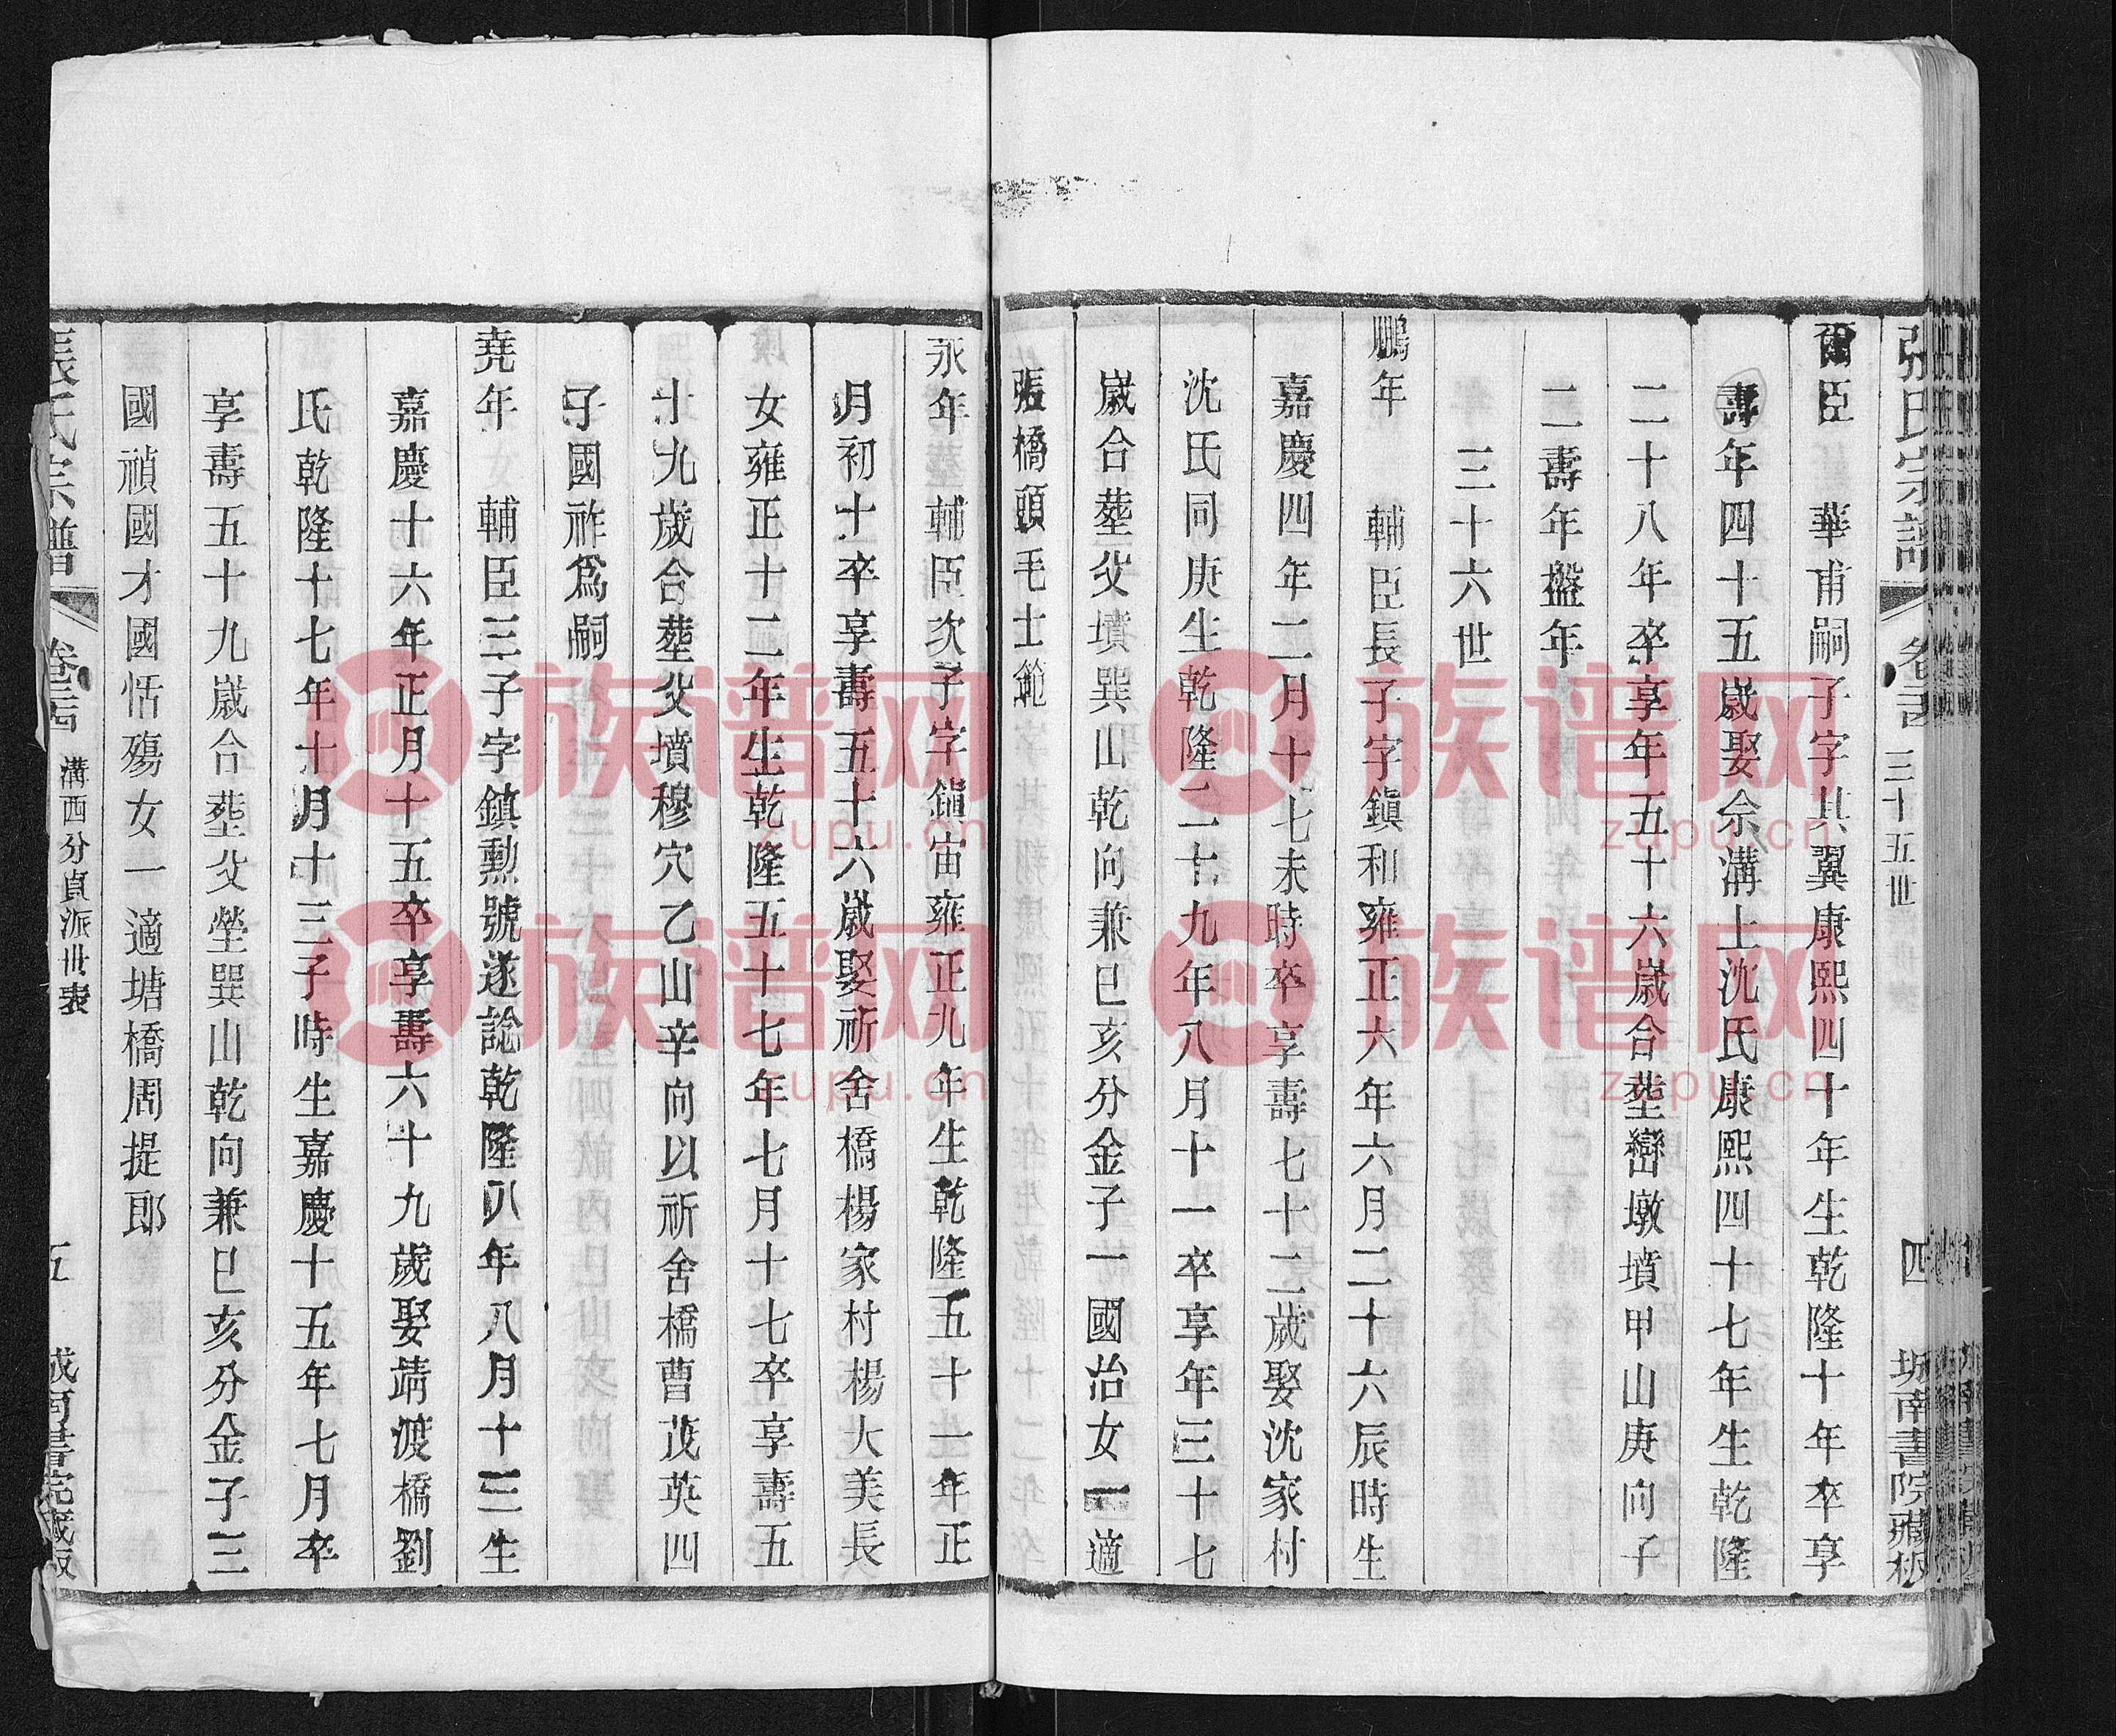 張氏宗譜 卷 三十五世 四 城南書院藏板
爾臣 華甫嗣子字其翼康熙四十年生乾隆十年卒享
壽年四十五歲娶佘溝上沈氏康熙四十七年生乾隆
二十八年卒享年五十六歲合塟巒墩墳甲山庚向子
二壽年盤年
三十六世
鵬年 輔臣長子字鎮和雍正六年六月二十六辰時生
嘉慶四年二月十七未時卒享壽七十二歲娶沈家村
沈氏同庚生乾隆二十九年八月十一卒享年三十七
歲合塟父墳巽山乾向兼巳亥分金子一國治女一適
張橋頭毛士範
永年 輔臣次子字鎭宙雍正九年生乾隆五十一年正
月初十卒享壽五十六歲娶祈舍橋楊家村楊大美長
女雍正十二年生乾隆五十七年七月十七卒享壽五
十九歲合塟父墳穆穴乙山辛向以祈舍橋曹茂英四
子國祚爲嗣
堯年 輔臣三子字鎮勲號遂諗乾隆八年八月十三生
嘉慶十六年正月十五卒享壽六十九歲娶靖渡橋劉
氏乾隆十七年十月十三子時生嘉慶十五年七月卒
享壽五十九歲合塟父塋巽山乾向兼巳亥分金子三
國禎國才國恬殤女一適塘橋周提郎
張氏宗譜 卷 溝西分貞派世表 五 城南書院藏板
族谱网
zupu.cn
族谱网
zupu.cn
族谱网
zupu.cn
族谱网
zupu.cn